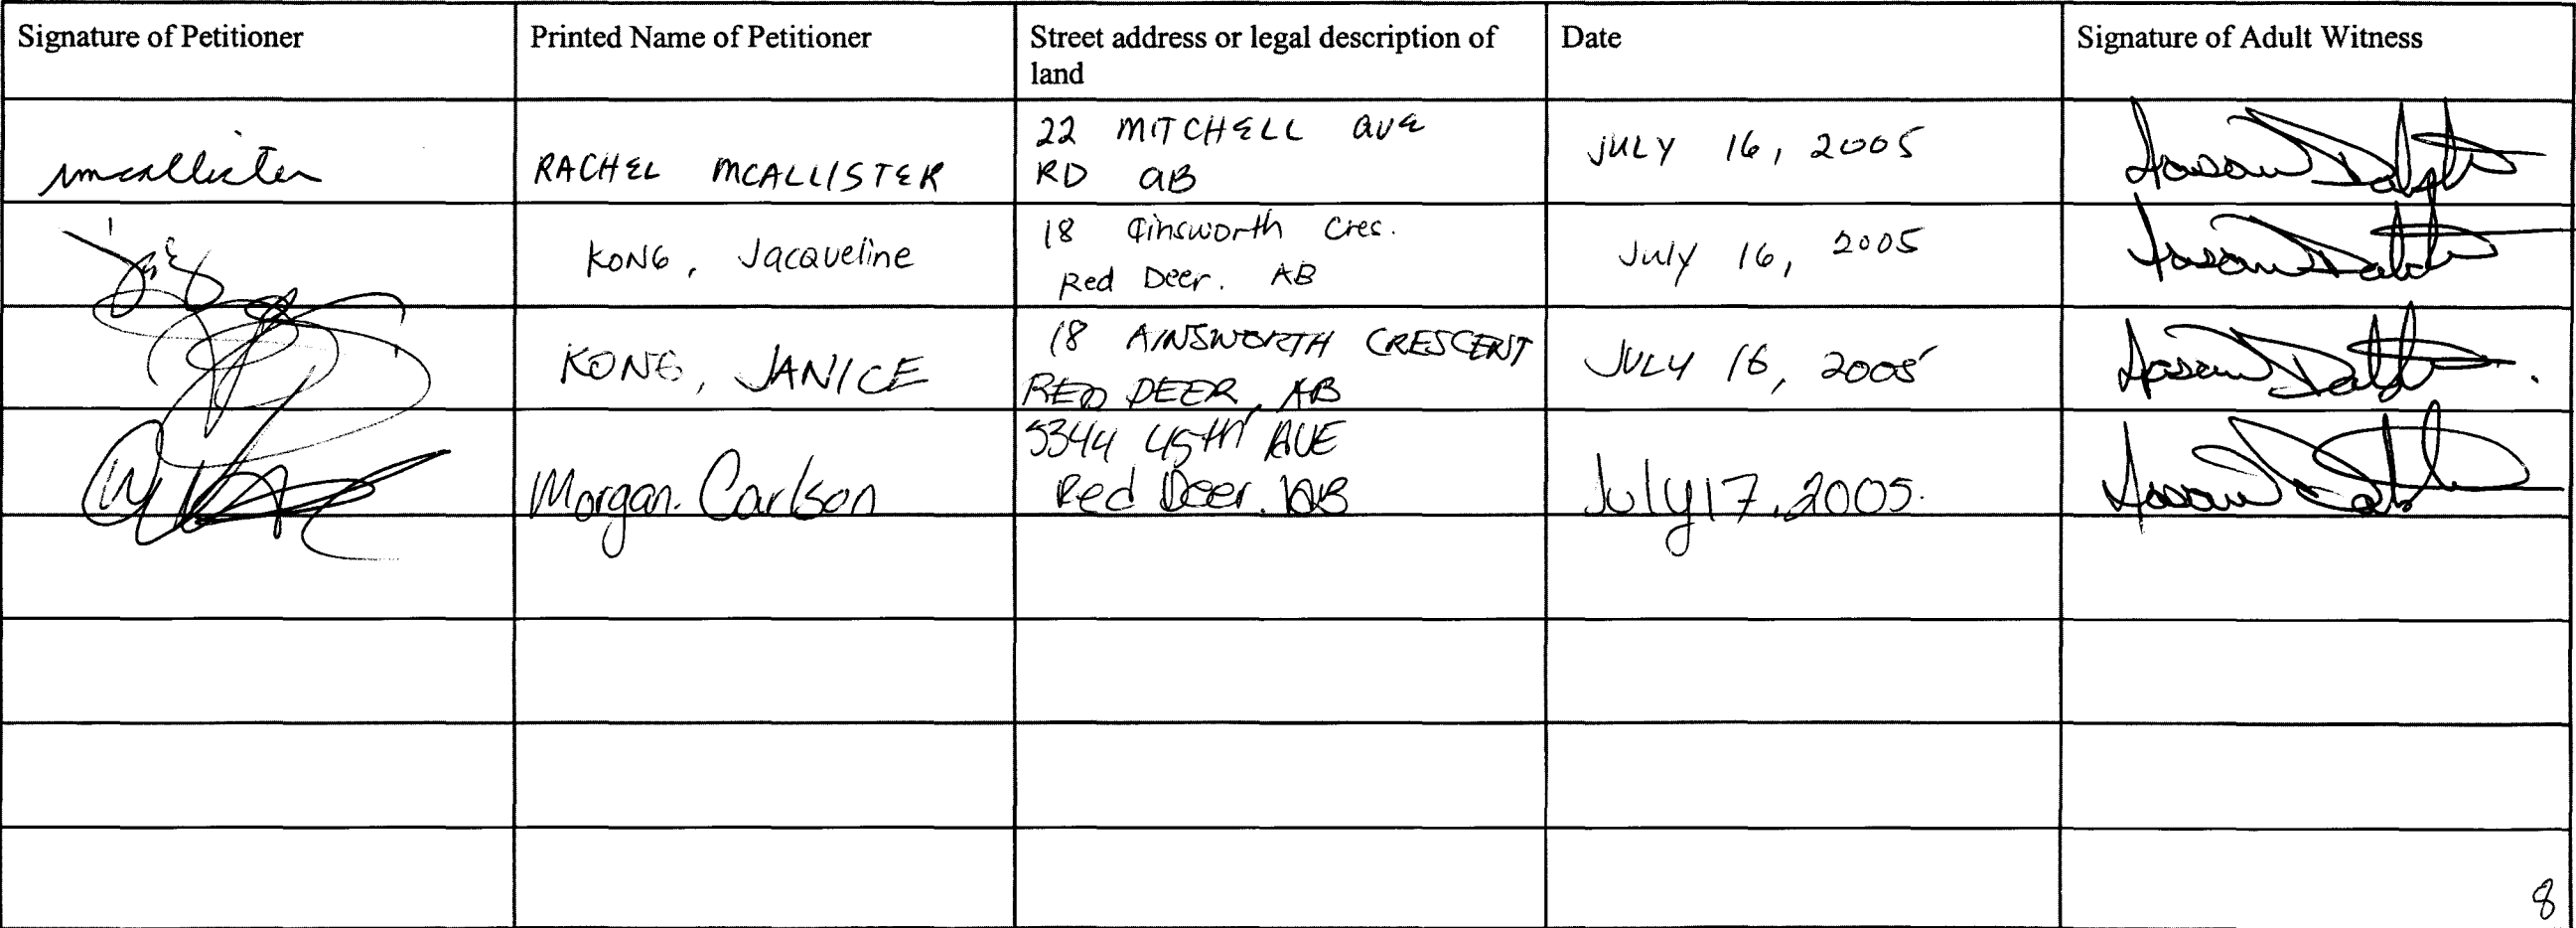 Signature of Petitioner
Printed Name of Petitioner
Street address or legal description of
land
Date
Signature of Adult Witness
mcallister
RACHEL MCALLISTER
22 MITCHELL AVE
RD AB
JULY 16, 2005
KONG, Jacqueline
18 Ainsworth Cres.
Red Deer. AB
July 16, 2005
KONG, JANICE
18 AINSWORTH CRESCENT
RED DEER, AB
JULY 16, 2005
Morgan. Carlson
5344 45TH AVE
Red Deer. AB
July 17, 2005.
8